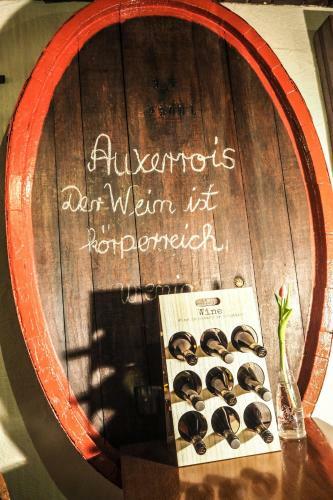 Auxerrois
Der Wein ist
körperreich,
wenig
Wine